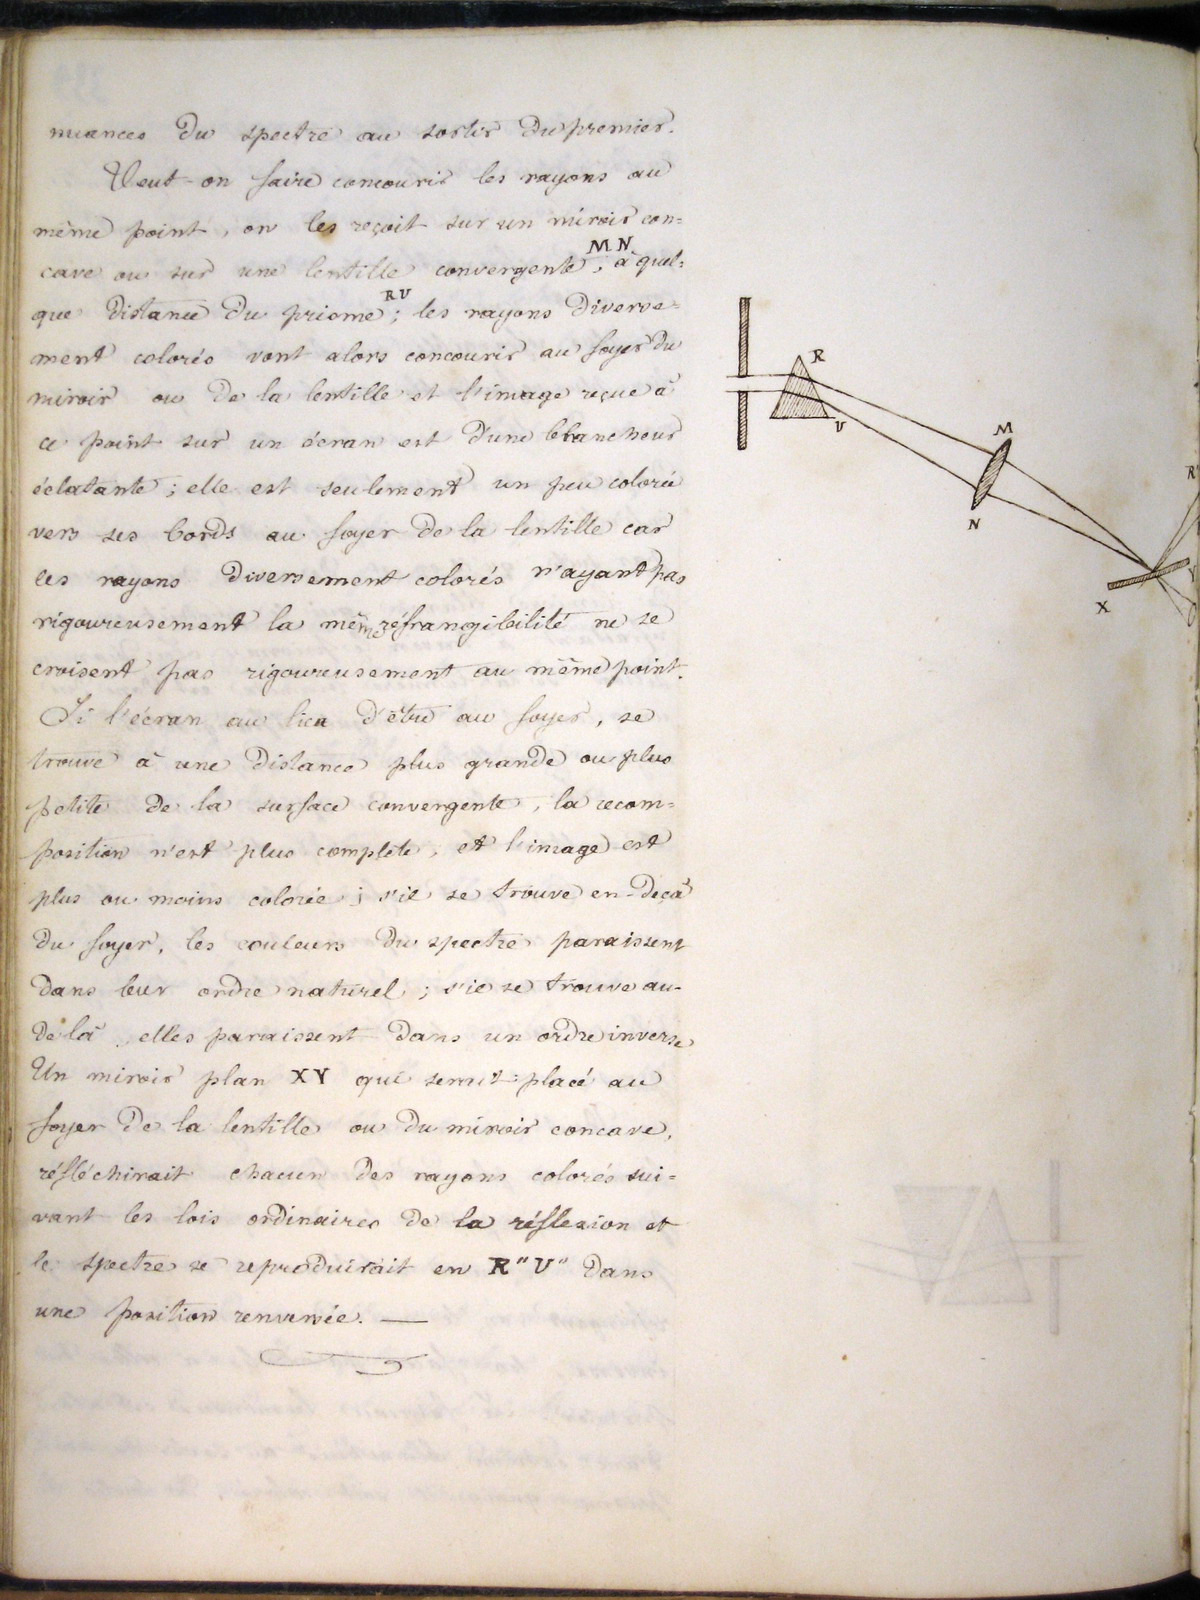 nuances du spectre au sortir du premier.
Veut-on faire concourir les rayons au
même point, on les reçoit sur un miroir con=
cave ou sur une lentille convergente MN, à quel=
que distance du prisme RV; les rayons diverse=
ment colorés vont alors concourir au foyer du
miroir ou de la lentille et l'image reçue à
ce point sur un écran est d'une blancheur
éclatante; elle est seulement un peu colorée
vers ses bords au foyer de la lentille car
les rayons diversement colorés n'ayant pas
rigoureusement la même réfrangibilité ne se
croisent pas rigoureusement au même point.
Si l'écran au lieu d'être au foyer, se
trouve à une distance plus grande ou plus
petite de la surface convergente, la recom=
position n'est plus complète, et l'image est
plus ou moins colorée; s'il se trouve en-deçà
du foyer, les couleurs du spectre paraissent
dans leur ordre naturel; s'il se trouve au-
delà, elles paraissent dans un ordre inverse
Un miroir plan XY qui serait placé au
foyer de la lentille ou du miroir concave,
réfléchirait chacun des rayons colorés sui=
vant les lois ordinaires de la réflexion et
le spectre se reproduirait en R"V" dans
une position renversée. —
R
V
M
N
R
X